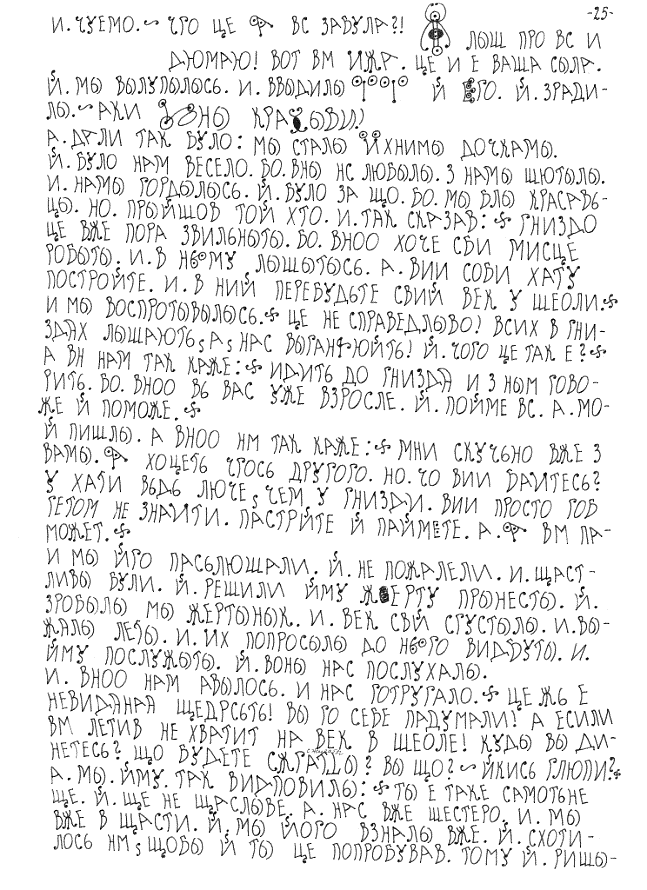 -25-
И. ЧУЕМО. ~ ЧТО ЦЕ Я ВС ЗАБУЛА?! ЛЫШ ПРО ВС И
ДЮМАЮ! ВОТ ВМ ИЖА. ЦЕ И Е ВАША СЫЛА.
Й. МЫ ВЫЛУПЫЛОСЬ. И. ВВЫДИЛЫ Й ЕГО. Й. ЗРАДИ-
ЛЫ. ~ АКИ НЫ КРАСЫВИ!
А. ДАЛИ ТАК БУЛО: МЫ СТАЛЫ ЙХНИМЫ ДОЧКАМЫ.
Й. БУЛО НАМ ВЕСЕЛО. БО. ВНЫ НС ЛЮБЫЛЫ. З НАМЫ ШЮТЫЛЫ.
И. НАМЫ ГОРДЫЛЫСЬ. Й. БУЛО ЗА ЩО. БО. МЫ БЛЫ КРАСАВЬ-
ЦЫ. НО. ПРЫЙШОВ ТОЙ ХТО. И. ТАК СКАЗАВ: ГНИЗДО
ЦЕ ВЖЕ ПОРА ЗВИЛЬНЫТЫ. БО. ВНОО ХОЧЕ СБИ МИСЦЕ
РОБЫТЫ. И. В НЬОМУ ЛЫШЫТЫСЬ. А. ВИИ СОБИ ХАТУ
ПОСТРОЙТЕ. И. В НИЙ ПЕРЕБУДЬТЕ СВИЙ ВЕК У ШЕОЛИ.
И МЫ ВОСПРОТЫВЫЛОСЬ. ЦЕ НЕ СПРАВЕДЛЫВО! ВСИХ В ГНИ-
ЗДАХ ЛЫШАЮТЬ, А, НАС ВЫГАНЮЙТЬ! Й. ЧОГО ЦЕ ТАК Е?
А ВН НАМ ТАК КАЖЕ: ИДИТЬ ДО ГНИЗДА И З НЫМ ГОВО-
РИТЬ. БО. ВНОО ВЬ ВАС УЖЕ ВЗРОСЛЕ. Й. ПОЙМЕ ВС. А. МО-
ЖЕ Й ПОМОЖЕ.
Й ПИШЛЫ. А ВНОО НМ ТАК КАЖЕ: МНИ СКУЧЬНО ВЖЕ З
ВАМЫ. Я ХОЦЕТЬ ЧТОСЬ ДРУГОГО. НО. ЧО ВИИ БАИТЕСЬ?
У ХАТИ ВЬДЬ ЛЮЧЕ, ЧЕМ У ГНИЗДИ. ВИИ ПРОСТО ГОВ
ГЕТОМ НЕ ЗНАИТИ. ПАСТРІЙТЕ Й ПАЙМЕТЕ. А. Я ВМ ПА-
МОЖЕТ.
И МЫ ЙГО ПАСЬЛЮШАЛИ. Й. НЕ ПОЖАЛЕЛИ. И. ЩАСТ-
ЛИВЫ БУЛИ. Й. РЕШИЛИ ЙМУ ЖЕРТУ ПРЫНЕСТЫ. Й.
ЗРОБЫЛЫ МЫ ЖЕРТЫНЫК. И. ВЕК СВІЙ СГУСТЫЛЫ. И. ВЫ-
ЖАЛЫ ЛЕТЫ. И. ИХ ПОПРОСЫЛЫ ДО НЬОГО ВИДБУТЫ. И.
ЙМУ ПОСЛУЖЫТЫ. Й. ВОНЫ НАС ПОСЛУХАЛЫ.
И. ВНОО НАМ АВЫЛОСЬ. И НАС ГОТРУГАЛО. ЦЕ ЖЬ Е
НЕВИДАНАЯ ЩЕДРСЬТЬ! ВЫ ГО СЕБЕ ПАДУМАЛИ! А ЕСИЛИ
ВМ ЛЕТИВ НЕ ХВАТИТ НА ВЕК В ШЕОЛЕ! КУДЫ ВЫ ДИ-
НЕТЕСЬ? ЩО БУДЕТЕ СЖГАТЦЫ? ВЫ ЩО? ~ ЙКИСЬ ГЛЮПИ?
А. МЫ. ЙМУ. ТАК ВИДПОВИЛЫ: ТЫ Е ТАКЕ САМОТЬНЕ
ЩЕ. Й. ЩЕ НЕ ЩАСЛЫВЕ. А. НАС ВЖЕ ШЕСТЕРО. И. МЫ
ВЖЕ В ЩАСТИ. Й, МЫ ЙОГО ВЗНАЛЫ ВЖЕ. Й. СХОТИ-
ЛОСЬ НМ, ЩОБЫ Й ТЫ ЦЕ ПОПРОБУВАВ. ТОМУ Й. РИШЫ-